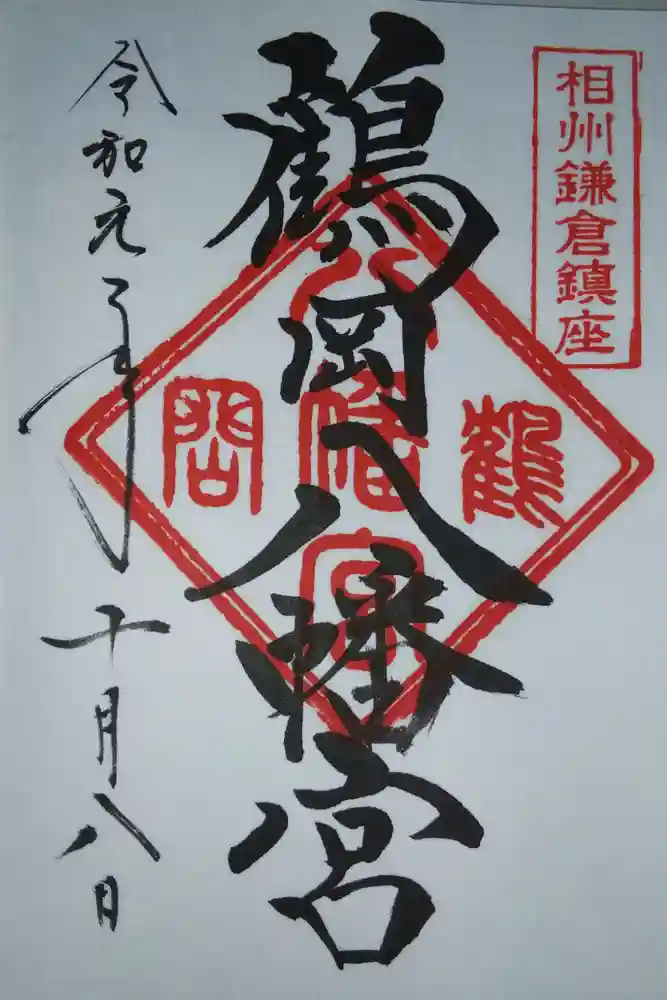 相州鎌倉鎮座
鶴岡八幡宮
鶴
八幡宮
岡
令和元年十月八日